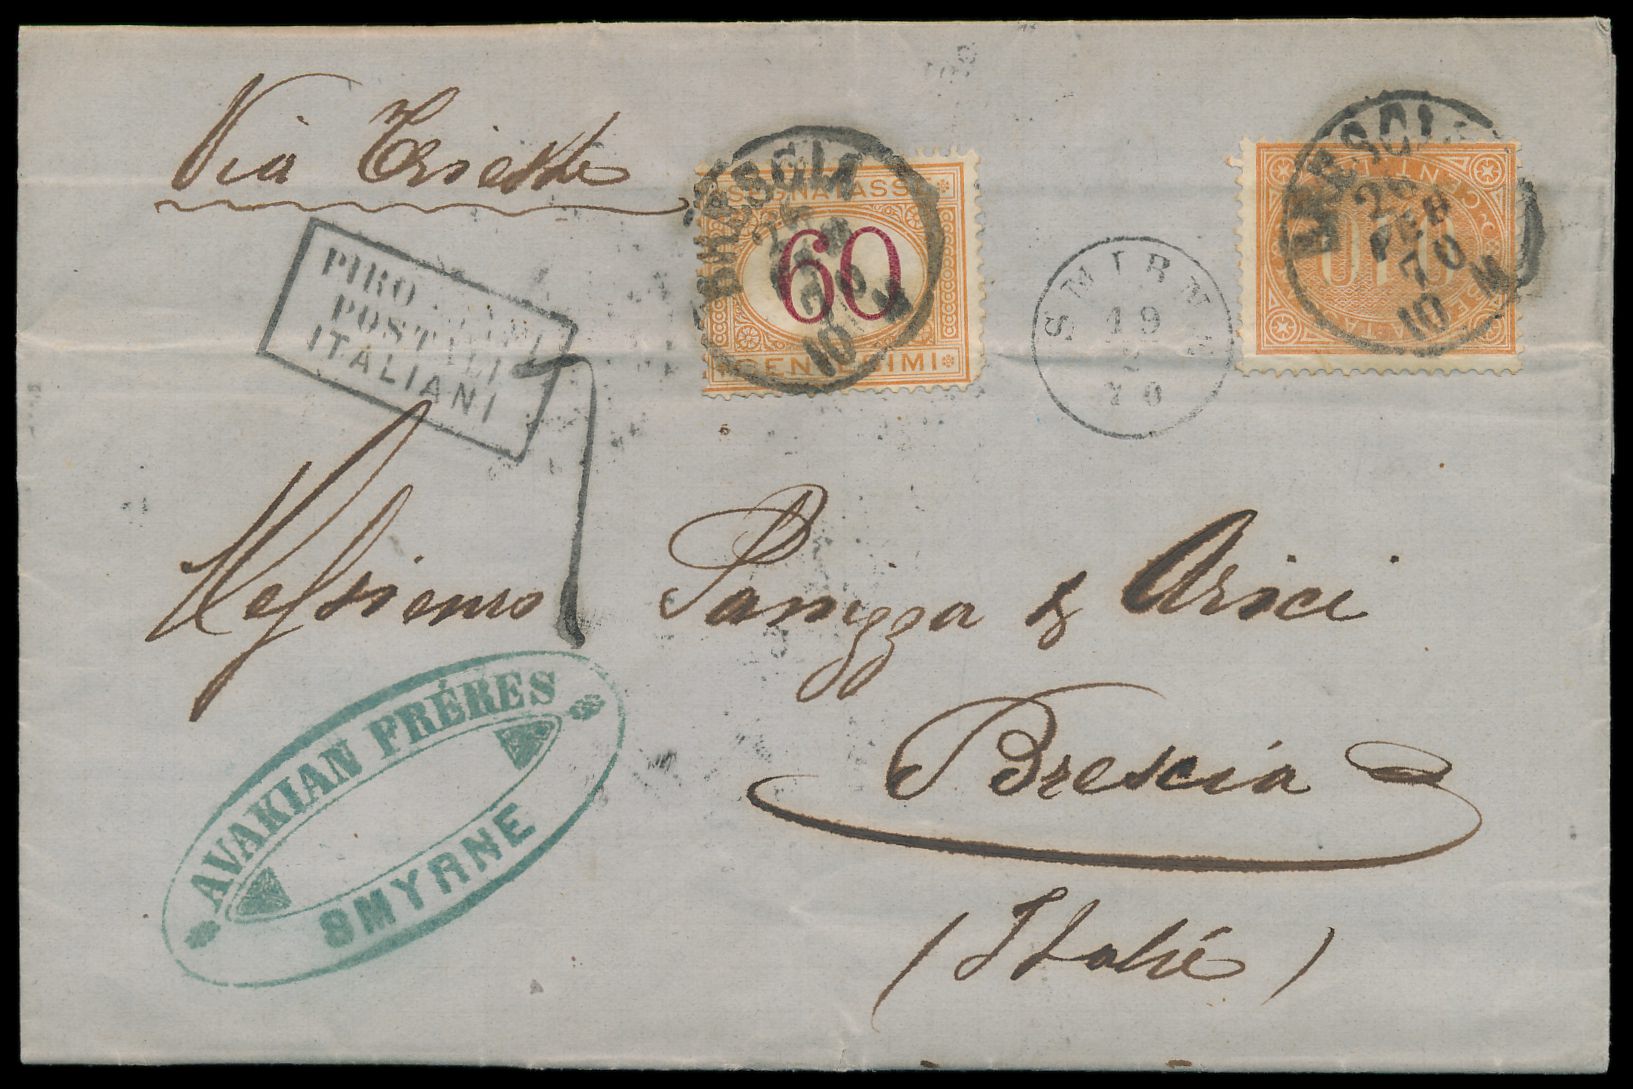 Via Trieste
PIRO
POSTALI
ITALIANI
BRESCIA
SEGNATASSE
60
CENTESIMI
10 M
SMIRNE
19
2
70
BRESCIA
FEB
70
10 M
CENT
010
1
Messieurs Panizza & Arici
Brescia
(Italie)
AVAKIAN FRÉRES
SMYRNE